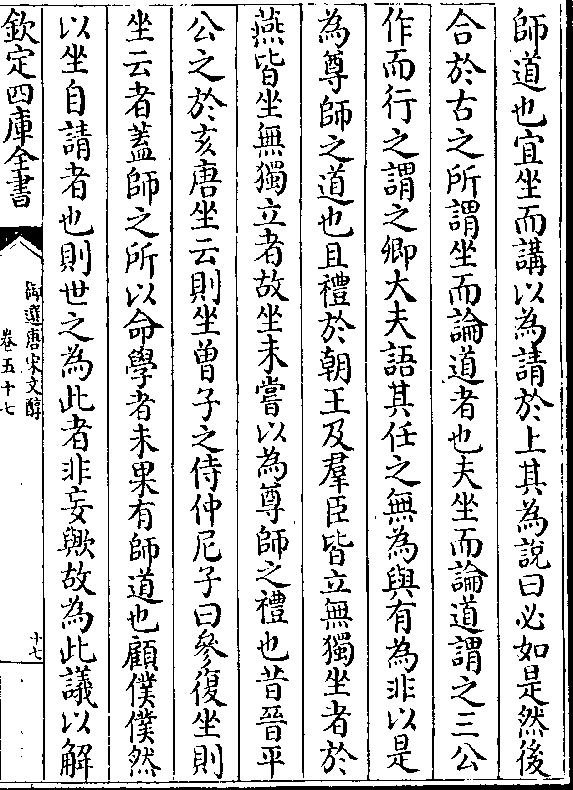 師道也宜坐而講以為請於上其為說曰必如是然後
合於古之所謂坐而論道者也夫坐而論道謂之三公
作而行之謂之卿大夫語其任之無為與有為非以是
為尊師之道也且禮於朝王及羣臣皆立無獨坐者於
燕皆坐無獨立者故坐未嘗以為尊師之禮也昔晉平
公之於亥唐坐云則坐曾子之侍仲尼子曰參復坐則
坐云者蓋師之所以命學者未果有師道也顧僕僕然
以坐自請者也則世之為此者非妄歟故為此議以解
欽定四庫全書
御選唐宋文醇
卷五十七
十七